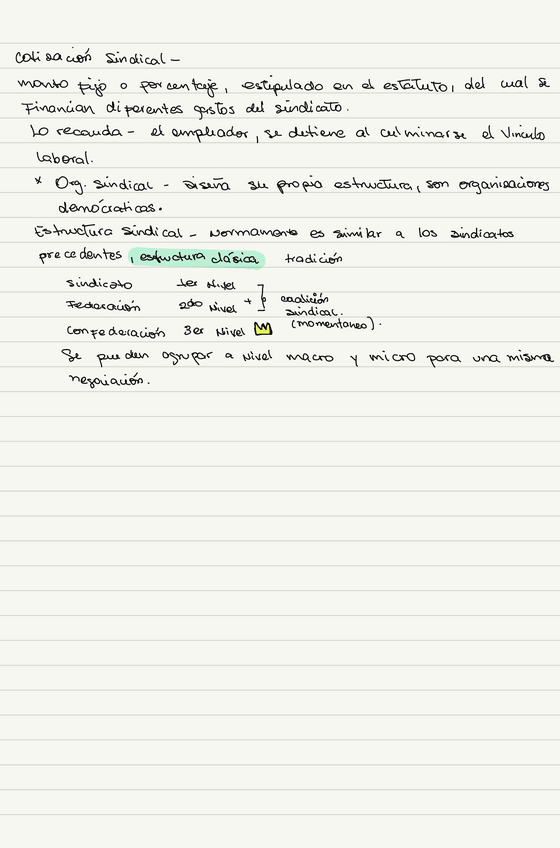 Cotización Sindical –
monto fijo o porcentaje, estipulado en el estatuto, del cual se
Financian diferentes gastos del sindicato.
Lo recauda – el empleador, se detiene al culminarse el Vínculo
laboral.
* Org. sindical – Diseña su propia estructura, son organizaciones
demócraticas.
Estructura Sindical – Normamente es similar a los sindicatos
precedentes, estructura clásica tradición
sindicato 1er Nivel
Federación 2do Nivel + } coalición
sindical.
(momentaneo).
Confederación 3er Nivel
Se pueden agrupar a Nivel macro y micro para una misma
negociación.